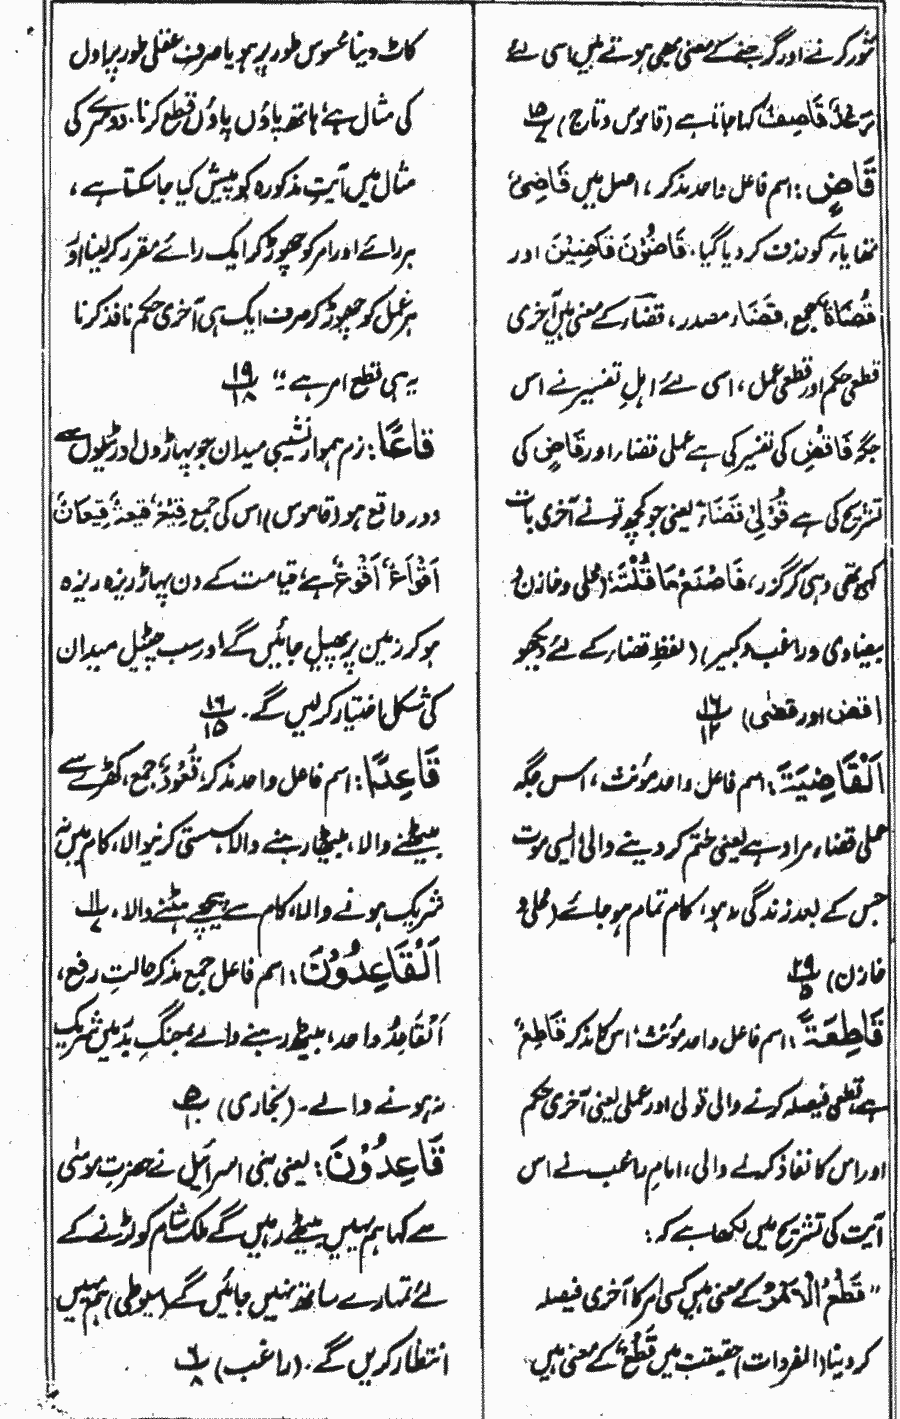 توڑ کرنے اور گرجنے کے معنی بھی ہوتے ہیں اسی لئے
رَعْدٌ قَاصِفٌ کہا جاتا ہے (قاموس و تاج) ۱۵/۷
قَاضٍ: اسم فاعل واحد مذکر، اصل میں قَاضِیٌ
تھا یاء کو حذف کر دیا گیا، قَاضُوْنَ قَاضِیْنَ اور
قُضَاۃٌ جمع، قَضَاء مصدر، قضاء کے معنی ہیں آخری
قطعی حکم اور قطعی عمل، اسی لئے اہلِ تفسیر نے اس
جگہ فَاقْضِ کی تفسیر کی ہے عملی قضاء اور قَاضٍ کی
تشریح کی ہے قُوْلِیْ قَضَاءٌ یعنی جو کچھ تو نے آخری بات
کہی تھی وہی کر گزر، فَاصْنَعْ مَا قُلْتَهٗ (محلی و خازن و
بیضاوی و راغب و کبیر) (لفظِ قضاء کے لئے دیکھو
اقض اور قضٰی) ۱۶/۱۲
اَلْقَاضِیَۃَ: اسم فاعل واحد مؤنث، اس جگہ
عملی قضاء مراد ہے یعنی ختم کر دینے والی ایسی موت
جس کے بعد زندگی نہ ہو، کام تمام ہو جائے (محلی و
خازن) ۲۹/۵
قَاطِعَۃً: اسم فاعل واحد مؤنث، اس کا مذکر قَاطِعٌ
ہے، قطعی فیصلہ کرنے والی قولی اور عملی یعنی آخری حکم
اور اس کا نفاذ کرنے والی، امامِ راغب نے اس
آیت کی تشریح میں لکھا ہے کہ:
"قَطْعُ الْاَمْرِ کے معنی ہیں کسی امر کا آخری فیصلہ
کر دینا (المفردات) حقیقت میں قَطْعٌ کے معنی ہیں
کاٹ دینا محسوس طور پر ہو یا صرف عقلی طور پر اول
کی مثال ہے ہاتھ پاؤں پاؤں قطع کرنا، دوسرے کی
مثال میں آیتِ مذکورہ کو پیش کیا جا سکتا ہے،
ہر رائے اور امر کو چھوڑ کر ایک رائے مقرر کر لینا اور
ہر عمل کو چھوڑ کر صرف ایک ہی آخری حکم نافذ کرنا
یہی قطع امر ہے" ۱۹/۱۸
قاعًا: نرم ہموار نشیبی میدان جو پہاڑوں اور ٹیلوں سے
دور واقع ہو (قاموس) اس کی جمع قِیْعٌ، قِیعَۃٌ، قِیعَانٌ
اَقْوَاعٌ، اَقْوُعٌ ہے، قیامت کے دن پہاڑ ریزہ ریزہ
ہو کر زمین پر پھیل جائیں گے اور سب چٹیل میدان
کی شکل اختیار کر لیں گے۔ ۱۶/۱۵
قَاعِدًا: اسم فاعل واحد مذکر، قُعُوْدٌ جمع، کھڑے سے
بیٹھنے والا، بیٹھا رہنے والا، سستی کرنیوالا، کام میں نہ
شریک ہونے والا، کام سے پیچھے ہٹنے والا، ۱۱/۷
اَلْقَاعِدُوْنَ: اسم فاعل جمع مذکر حالتِ رفع،
اَلْقَاعِدُ واحد، بیٹھ رہنے والے، جنگِ بدر میں شریک
نہ ہونے والے۔ (بخاری) ۵/۱۰
قَاعِدُوْنَ: یعنی بنی اسرائیل نے حضرت موسٰی
سے کہا ہم یہیں بیٹھے رہیں گے ملک شام کو لڑنے کے
لئے تمہارے ساتھ نہیں جائیں گے (سیوطی) ہم یہیں
انتظار کریں گے۔ (راغب) ۶/۸